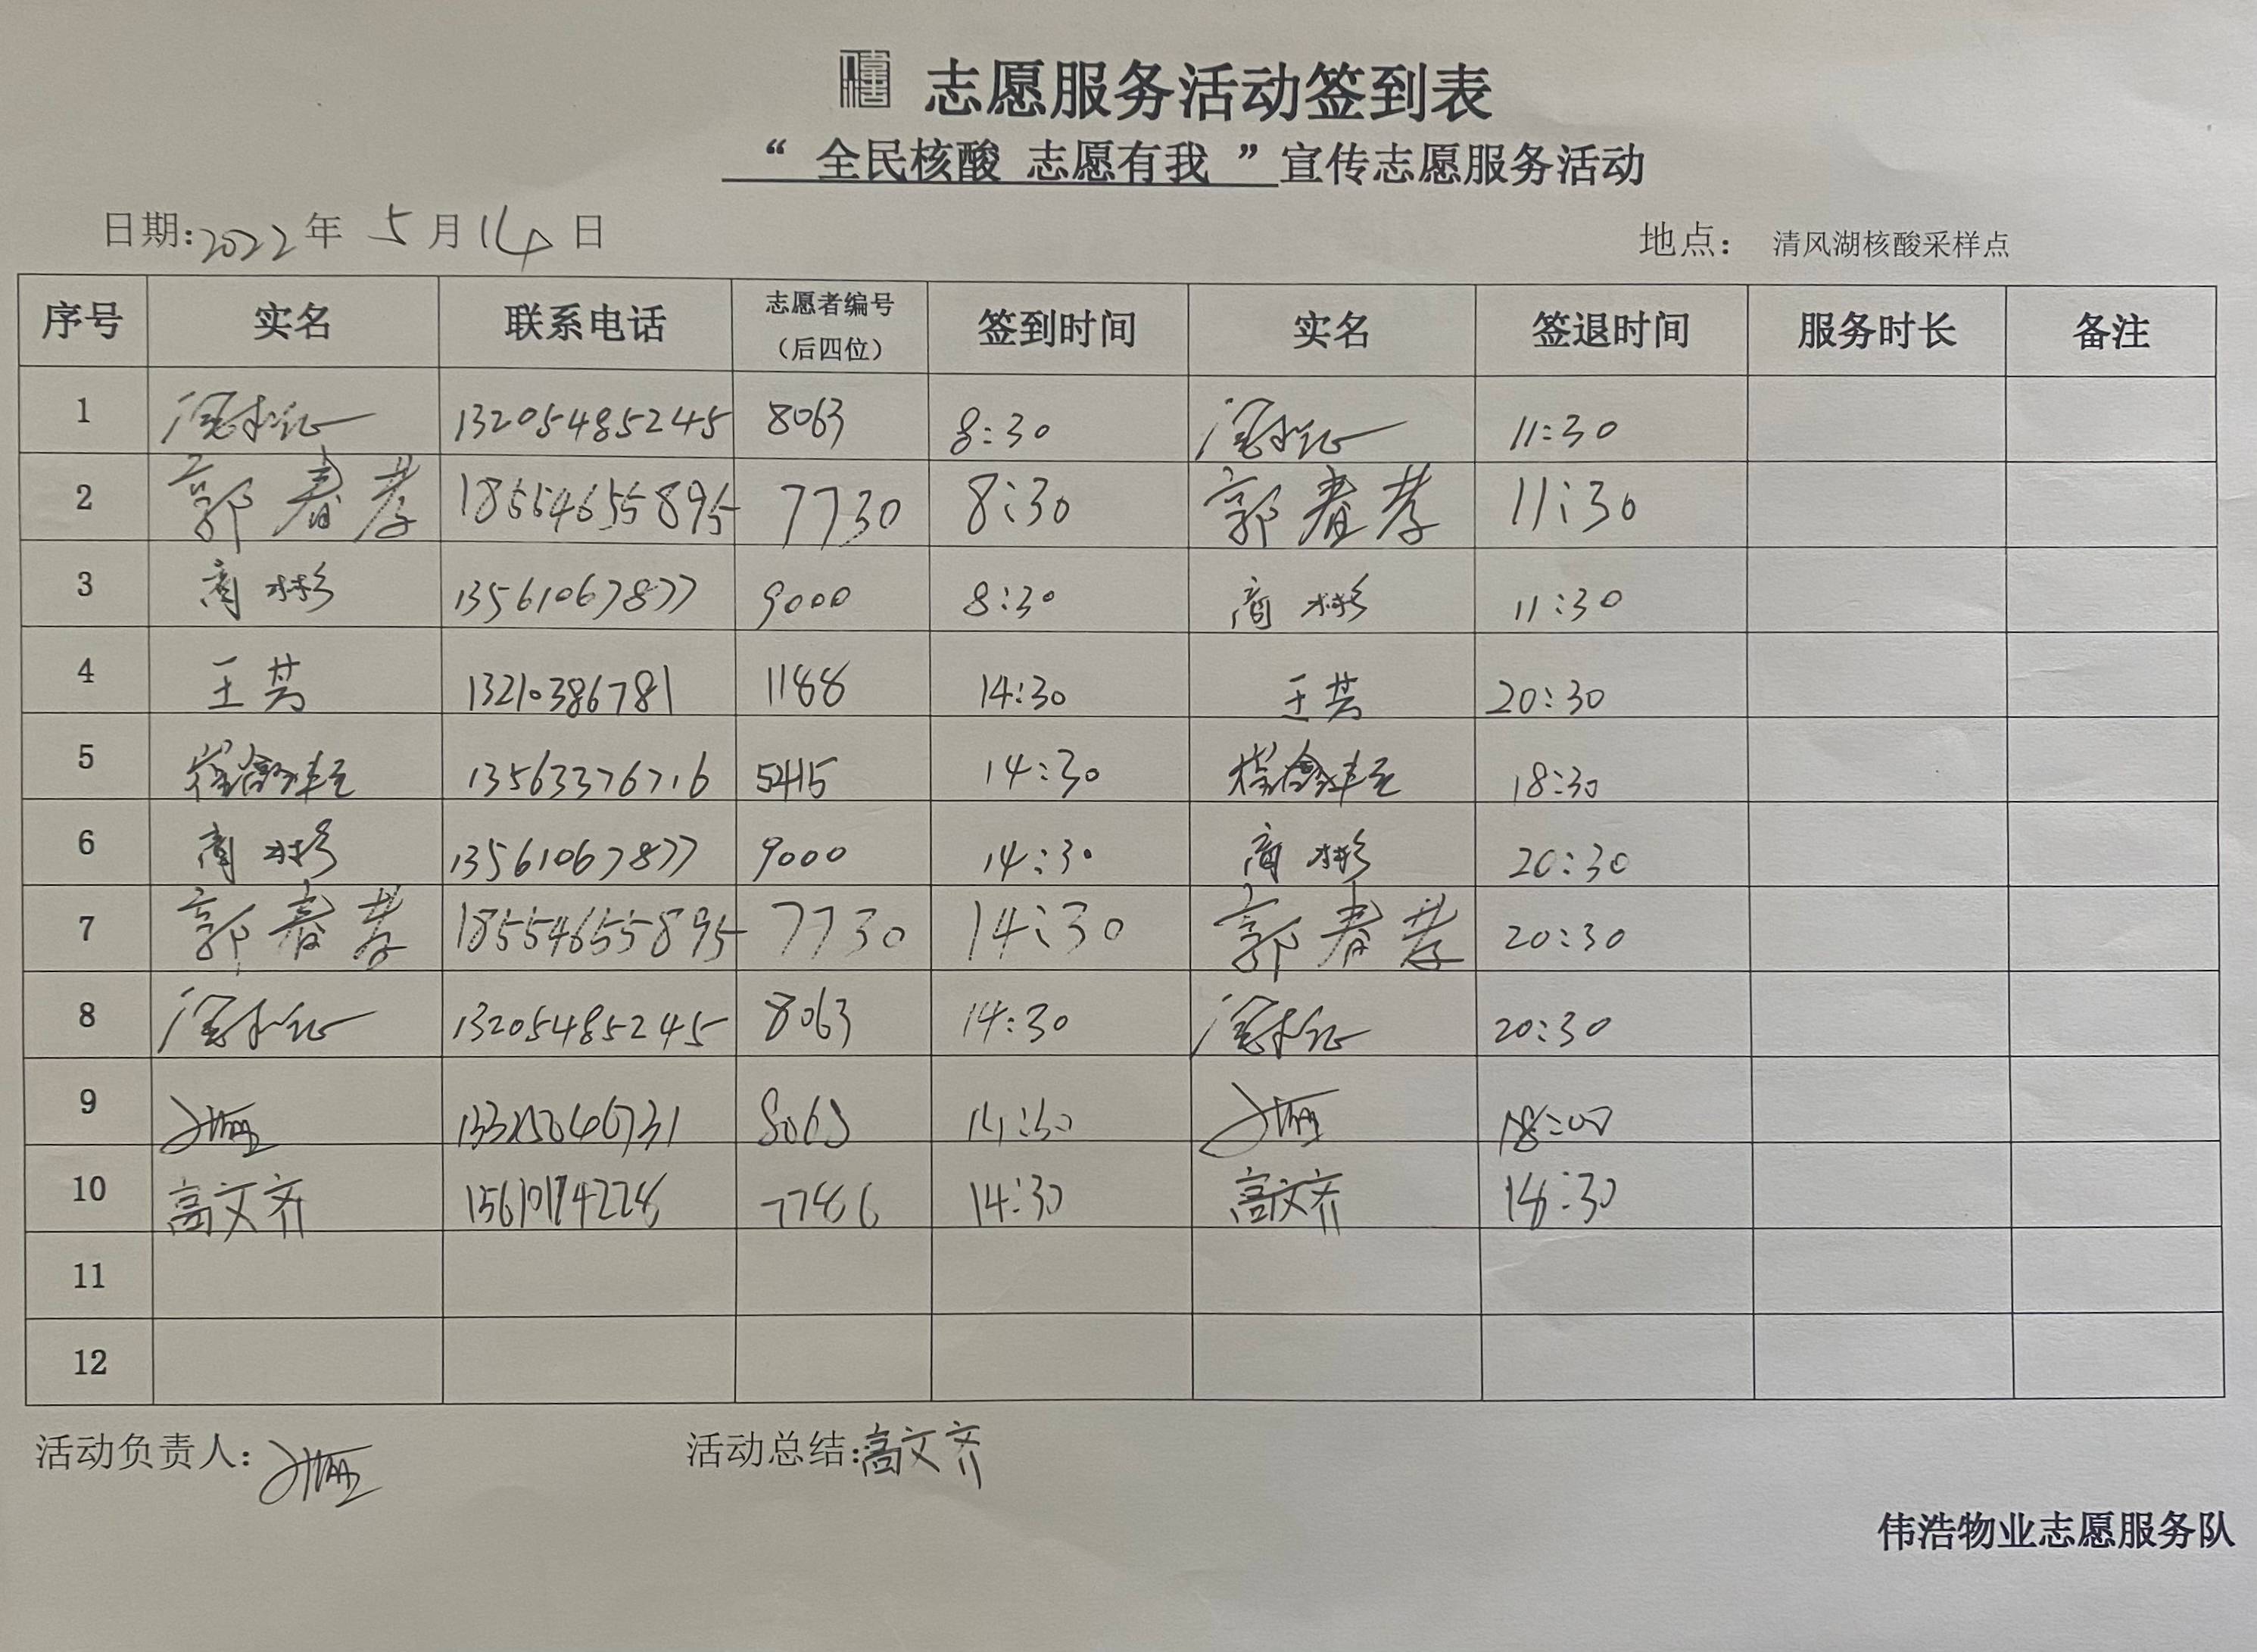 志愿服务活动签到表
“ 全民核酸 志愿有我 ”宣传志愿服务活动
日期:2022年 5月14日 地点： 清风湖核酸采样点
序号 实名 联系电话 志愿者编号（后四位） 签到时间 实名 签退时间 服务时长 备注
1 13205485245 8063 8:30 11:30
2 郭春孝 18554655895 7730 8:30 郭春孝 11:30
3 商彬彬 13561067877 9000 8:30 商彬彬 11:30
4 王芸 13210386781 1188 14:30 王芸 20:30
5 13563376716 5415 14:30 18:30
6 商彬彬 13561067877 9000 14:30 商彬彬 20:30
7 郭春孝 18554655895 7730 14:30 郭春孝 20:30
8 13205485245 8063 14:30 20:30
9 14:30 18:00
10 高文齐 7786 14:30 高文齐 18:30
11
12
活动负责人: 活动总结:高文齐
伟浩物业志愿服务队